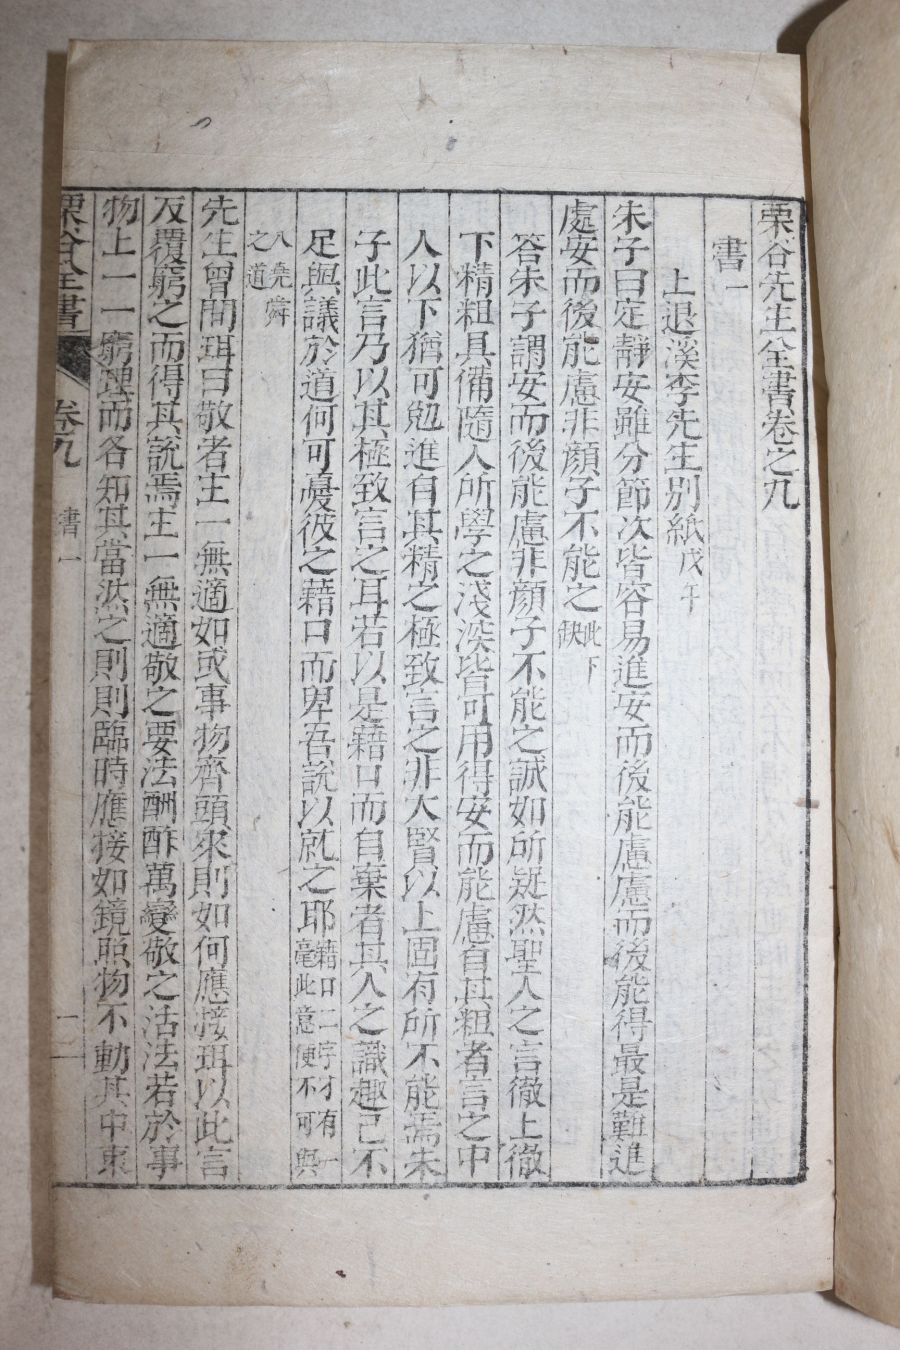 栗谷先生全書卷之九
書一
上退溪李先生別紙戊午
朱子曰定靜安雖分節次皆容易進安而後能慮慮而後能得最是難進
處安而後能慮非顔子不能之此下缺
答朱子謂安而後能慮非顔子不能之誠如所疑然聖人之言徹上徹
下精粗具備隨人所學之淺深皆可用得安而能慮自其粗者言之中
人以下猶可勉進自其精之極致言之非大賢以上固有所不能焉朱
子此言乃以其極致言之耳若以是藉口而自棄者其人之識趣已不
足與議於道何可憂彼之藉口而卑吾說以就之耶藉口二字才有一毫此意便不可與
入堯舜之道
先生曾問珥曰敬者主一無適如或事物齊頭來則如何應接珥以此言
反覆窮之而得其說焉主一無適敬之要法酬酢萬變敬之活法若於事
物上一一窮理而各知其當然之則則臨時應接如鏡照物不動其中東
栗谷全書 卷九 書一 一